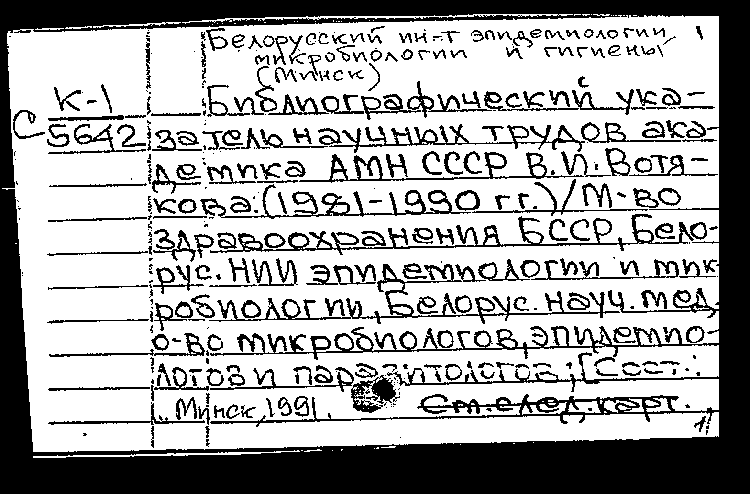 Белорусский ин-т эпидемиологии, 1
микробиологии и гигиены
(Минск)
К-1 Библиографический ука-
С 5642 затель научных трудов ака-
демика АМН СССР В.И. Вотя-
кова.(1981-1990 гг.)/М-во
здравоохранения БССР, Бело-
рус. НИИ эпидемиологии и мик-
робиологии, Белорус. науч. мед.
о-во микробиологов, эпидемио-
логов и паразитологов; [Сост.:
.. Минск, 1991. См. след. карт.
1/